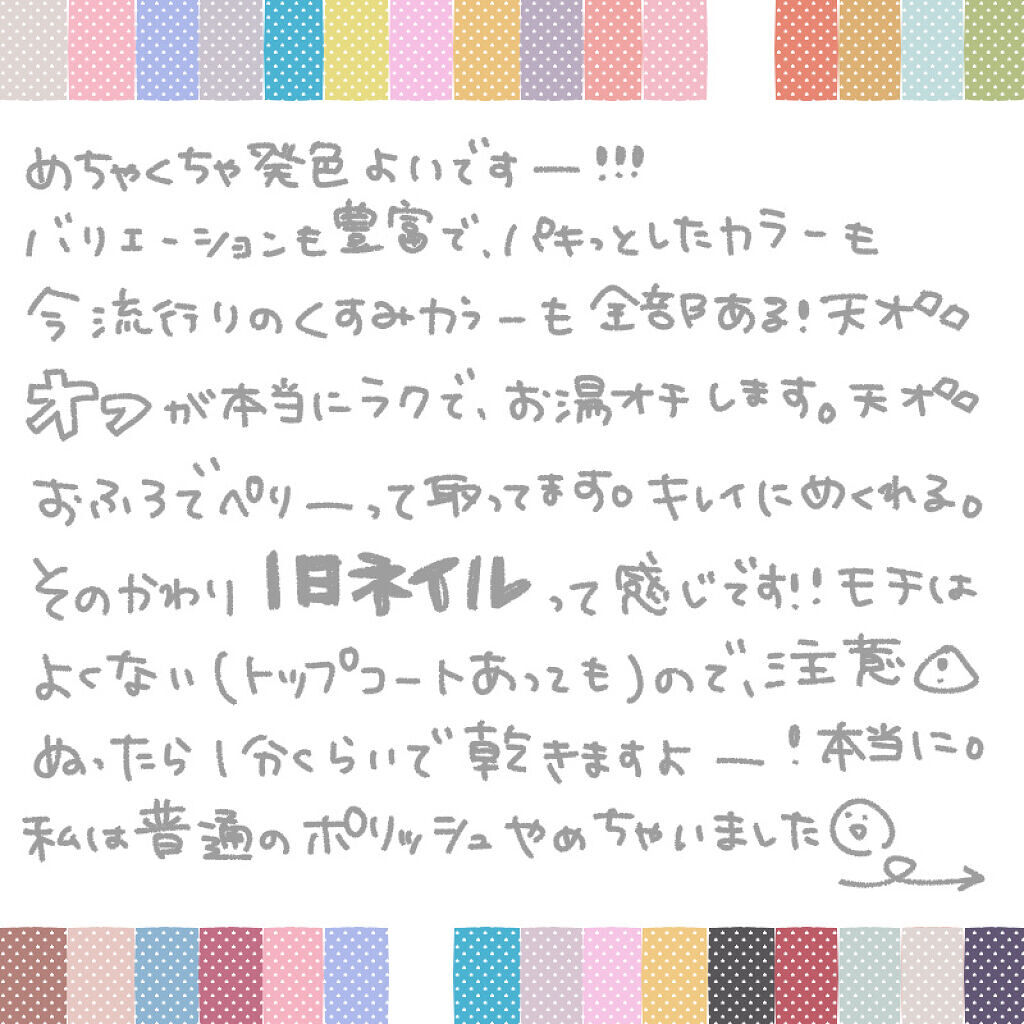 めちゃくちゃ発色よいですー!!!
バリエーションも豊富で、パキっとしたカラーも
今流行りのくすみカラーも全部ある!オススメ
オフが本当にラクで、お湯オチします。
おふろでペリーって取ってます。キレイにめくれる。
そのかわり1日ネイルって感じです!!モチは
よくない(トップコートあっても)ので、注意
ぬったら1分くらいで乾きますよー!本当に。
私は普通のポリッシュやめちゃいました